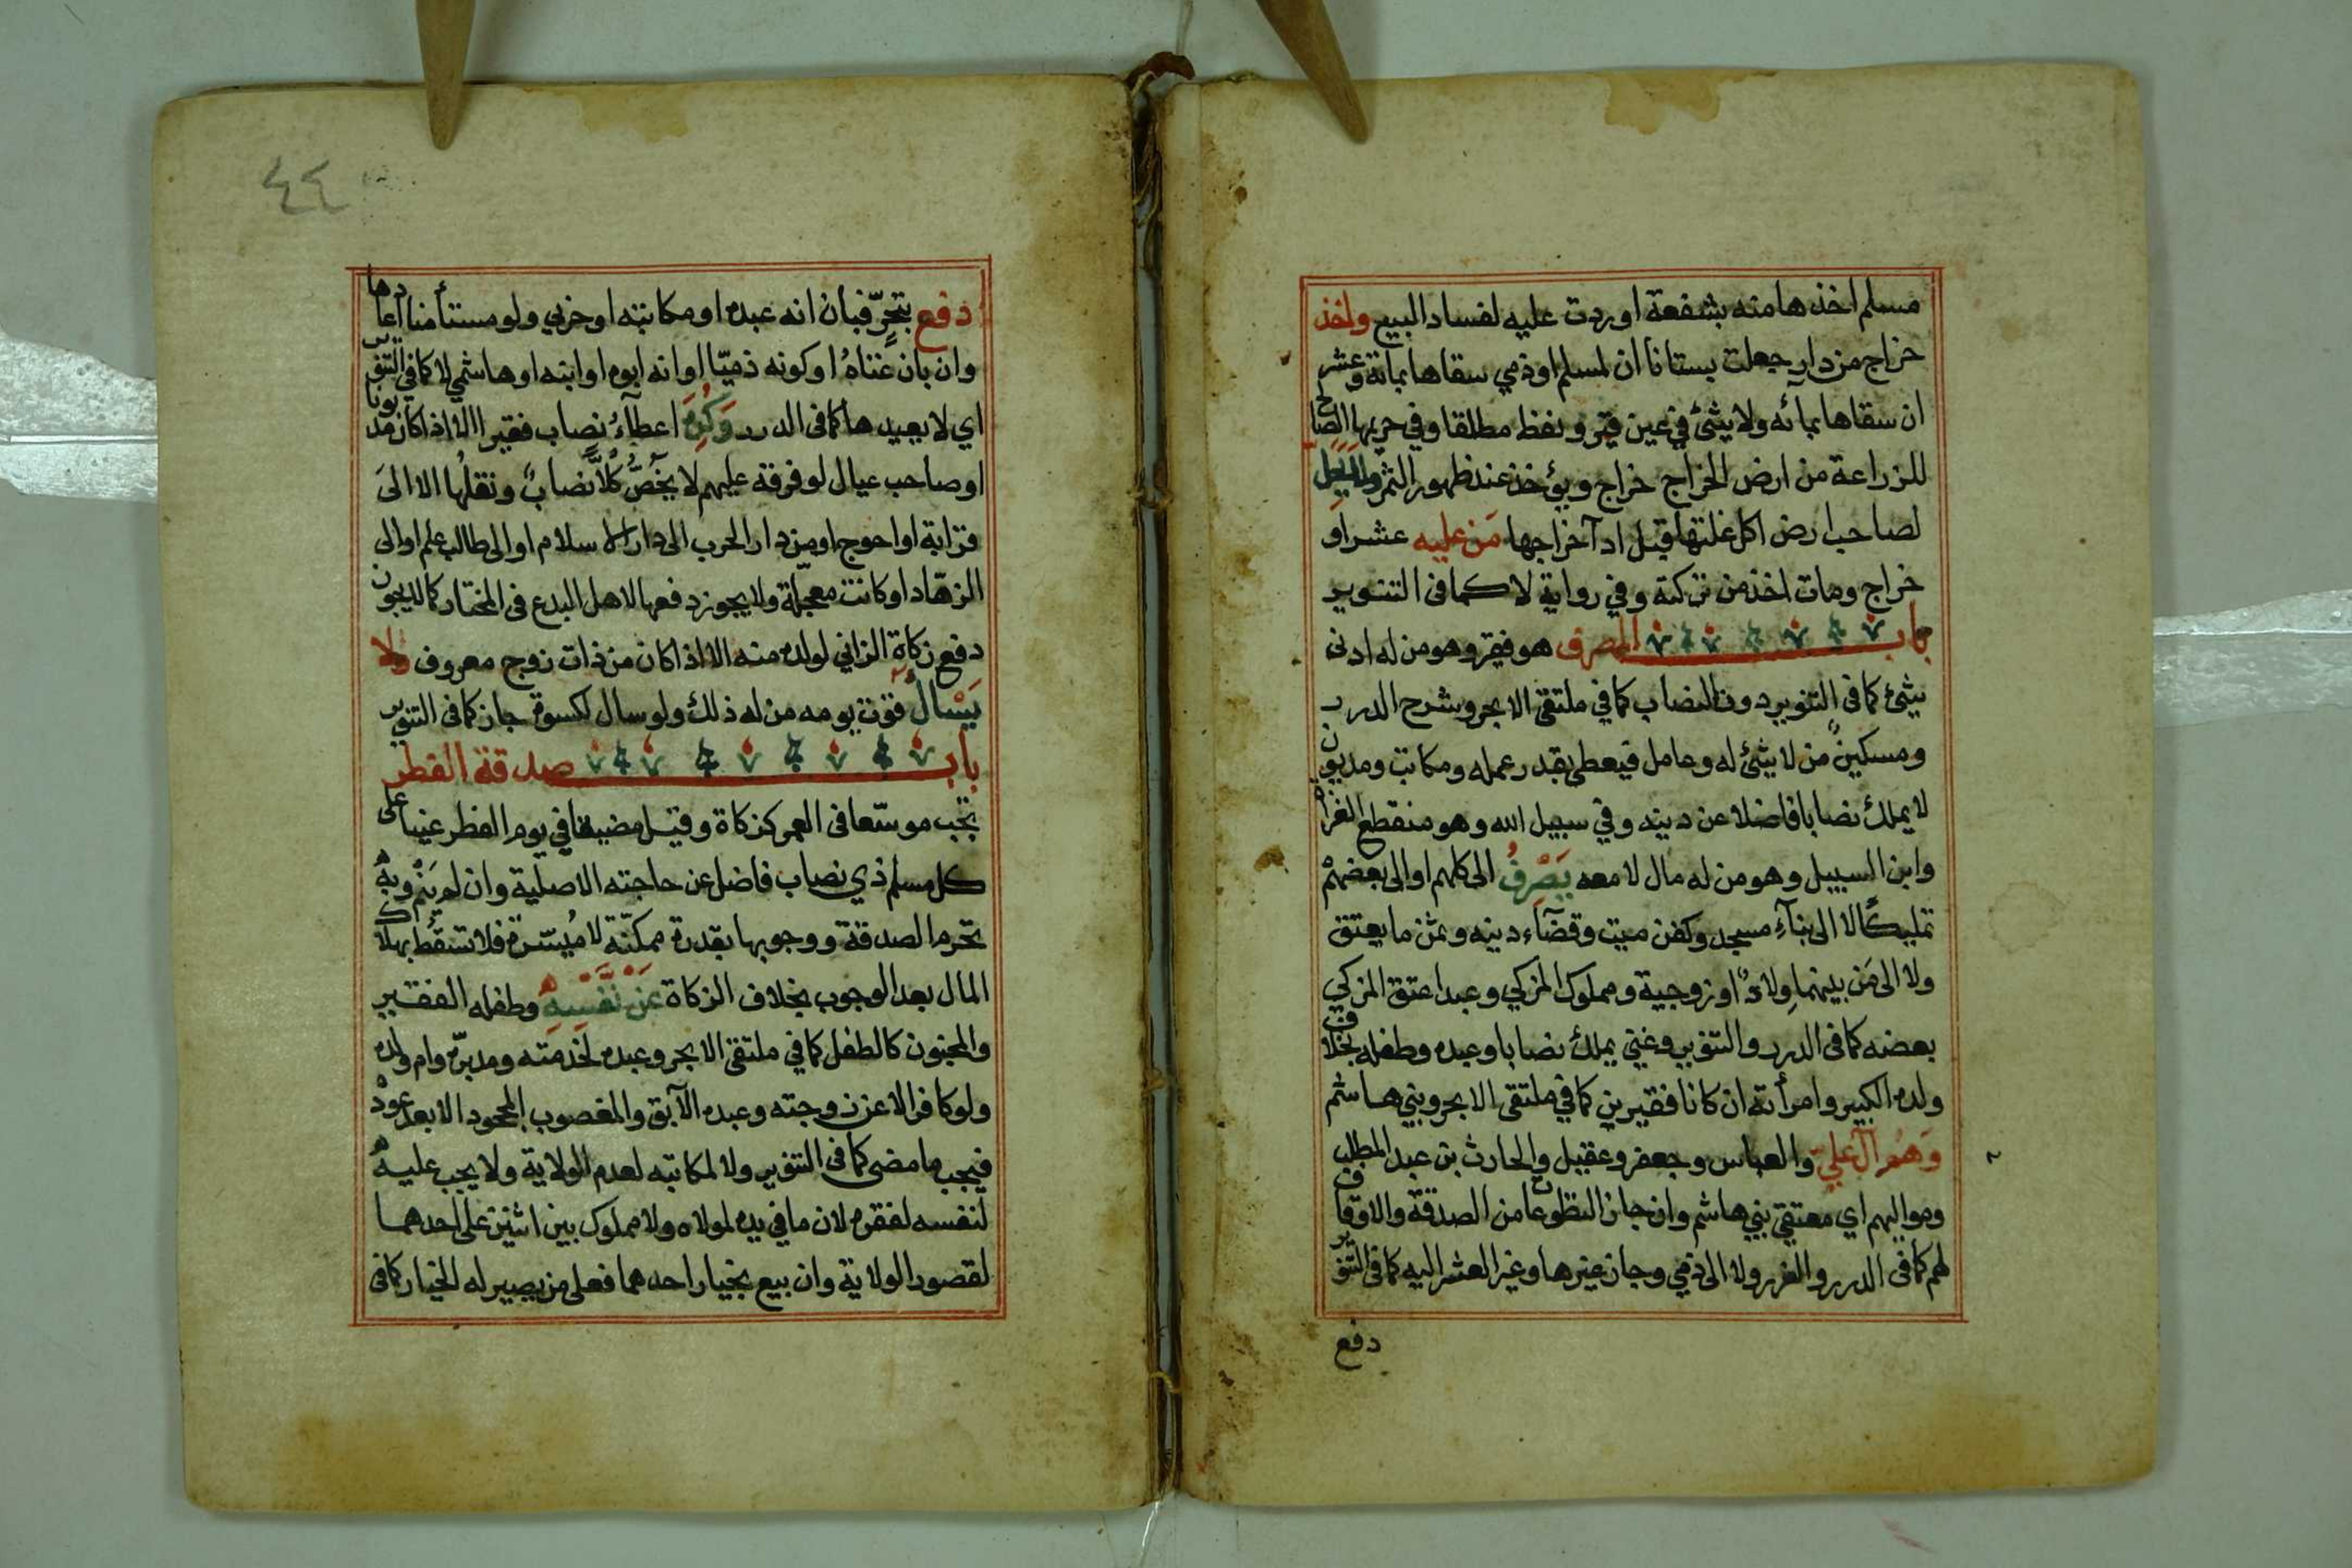 مسلم اخذها منه بشفعة او ردت عليه لفساد البيع واخذ
خراج من دار جعلت بستانا ان لمسلم او ذمي سقاها بمائه وعشر
ان سقاها بمائه ولا شئ في عين قير ونفط مطلقا وفي حريمها الصالح
للزراعة من ارض الخراج خراج ويؤخذ عند ظهور الثمر ولا يحل
لصاحب ارض اكل غلتها قبل ادآ خراجها مَن عليه عشر او
خراج ومات اخذ من تركته وفي رواية لا كما في التنوير
باب المصرف هو فقير وهو من له ادنى
شئ كما في التنوير دون النصاب كما في ملتقى الابحر وشرح الدرر
ومسكين من لا شئ له وعامل فيعطى بقدر عمله ومكاتب ومديون
لا يملك نصابا فاضلا عن دينه وفي سبيل الله وهو منقطع الغزاة
وابن السبيل وهو من له مال لا معه يَصْرِفُ الى كلهم او الى بعضهمْ
تمليكًا لا الى بنآءِ مسجد وكفن ميت وقضآء دينه وثمن ما يعتق
ولا الى مَن بينهما وِلادٌ او زوجية ومملوك المزكي وعبد اعتق المزكي
بعضه كما في الدرر والتنوير وغني يملك نصابا وعبده وطفله بخلاف
ولده الكبير وامرأته ان كانا فقيرين كما في ملتقى الابحر وبني هاشم
وَهُم آل علي والعباس وجعفر وعقيل والحارث بن عبد المطلب
ومواليهم اي معتقي بني هاشم وان جاز التطوعات من الصدقة والاوقاف
لهم كما في الدرر والغرر ولا الى ذمي وجاز غيرها وغير العشر اليه كما في التنوير
دفع
٤٤
دفع بتحرٍّ فبان انه عبده او مكاتبه او حربي ولو مستأمنا اعادها
وان بان غناهُ او كونه ذميّا او انه ابوه او ابنه او هاشمي لا كما في التنوير
اي لا يعيدها كما في الدرر وَكُرِهَ اعطآءُ نصاب فقيرا الا اذا كان مديونا
او صاحب عيال لو فرقه عليهم لا يخُصُّ كُلاًّ نصابٌ ونقلُها الا الىَ
قرابة او احوج او من دار الحرب الى دار الاسلام او الى طالب علم او الى
الزهّاد او كانت معجّلة ولا يجوز دفعها لاهل البدع في المختار كما لا يجوز
دفع زكاة الزاني لولده منه الا اذا كان من ذات زوج معروف ولا
يَسْأل قوت يومه من له ذلك ولو سال لكسوة جاز كما في التنوير
باب صدقة الفطر
تجب موسّعا في العمر كزكاة وقيل مضيقا في يوم الفطر عينا على
كل مسلم ذي نصاب فاضل عن حاجته الاصلية وان لم يَنْم وبهْ
تحرم الصدقة ووجوبها بقدرة ممكنّة لا مُيسّرة فلا تسْقُط بهلاك
المال بعد الوجوب بخلاف الزكاة عَنْ نَفْسِهِ وطفله الفقير
والمجنون كالطفل كما في ملتقى الابحر وعبده لخدمته ومدبرّه وام ولده
ولو كافرا لا عن زوجته وعبده الآبق والمغصوب المجحود الا بعد عودْ
فيجب ما مضى كما في التنوير ولا لمكاتبه لعدم الولاية ولا يجب عليهْ
لنفسه لفقره لان ما في يده لمولاه ولا مملوك بين اثنين على احدهما
لقصور الولاية وان بيع بخيار احدهما فعلى من يصير له الخيار كما في